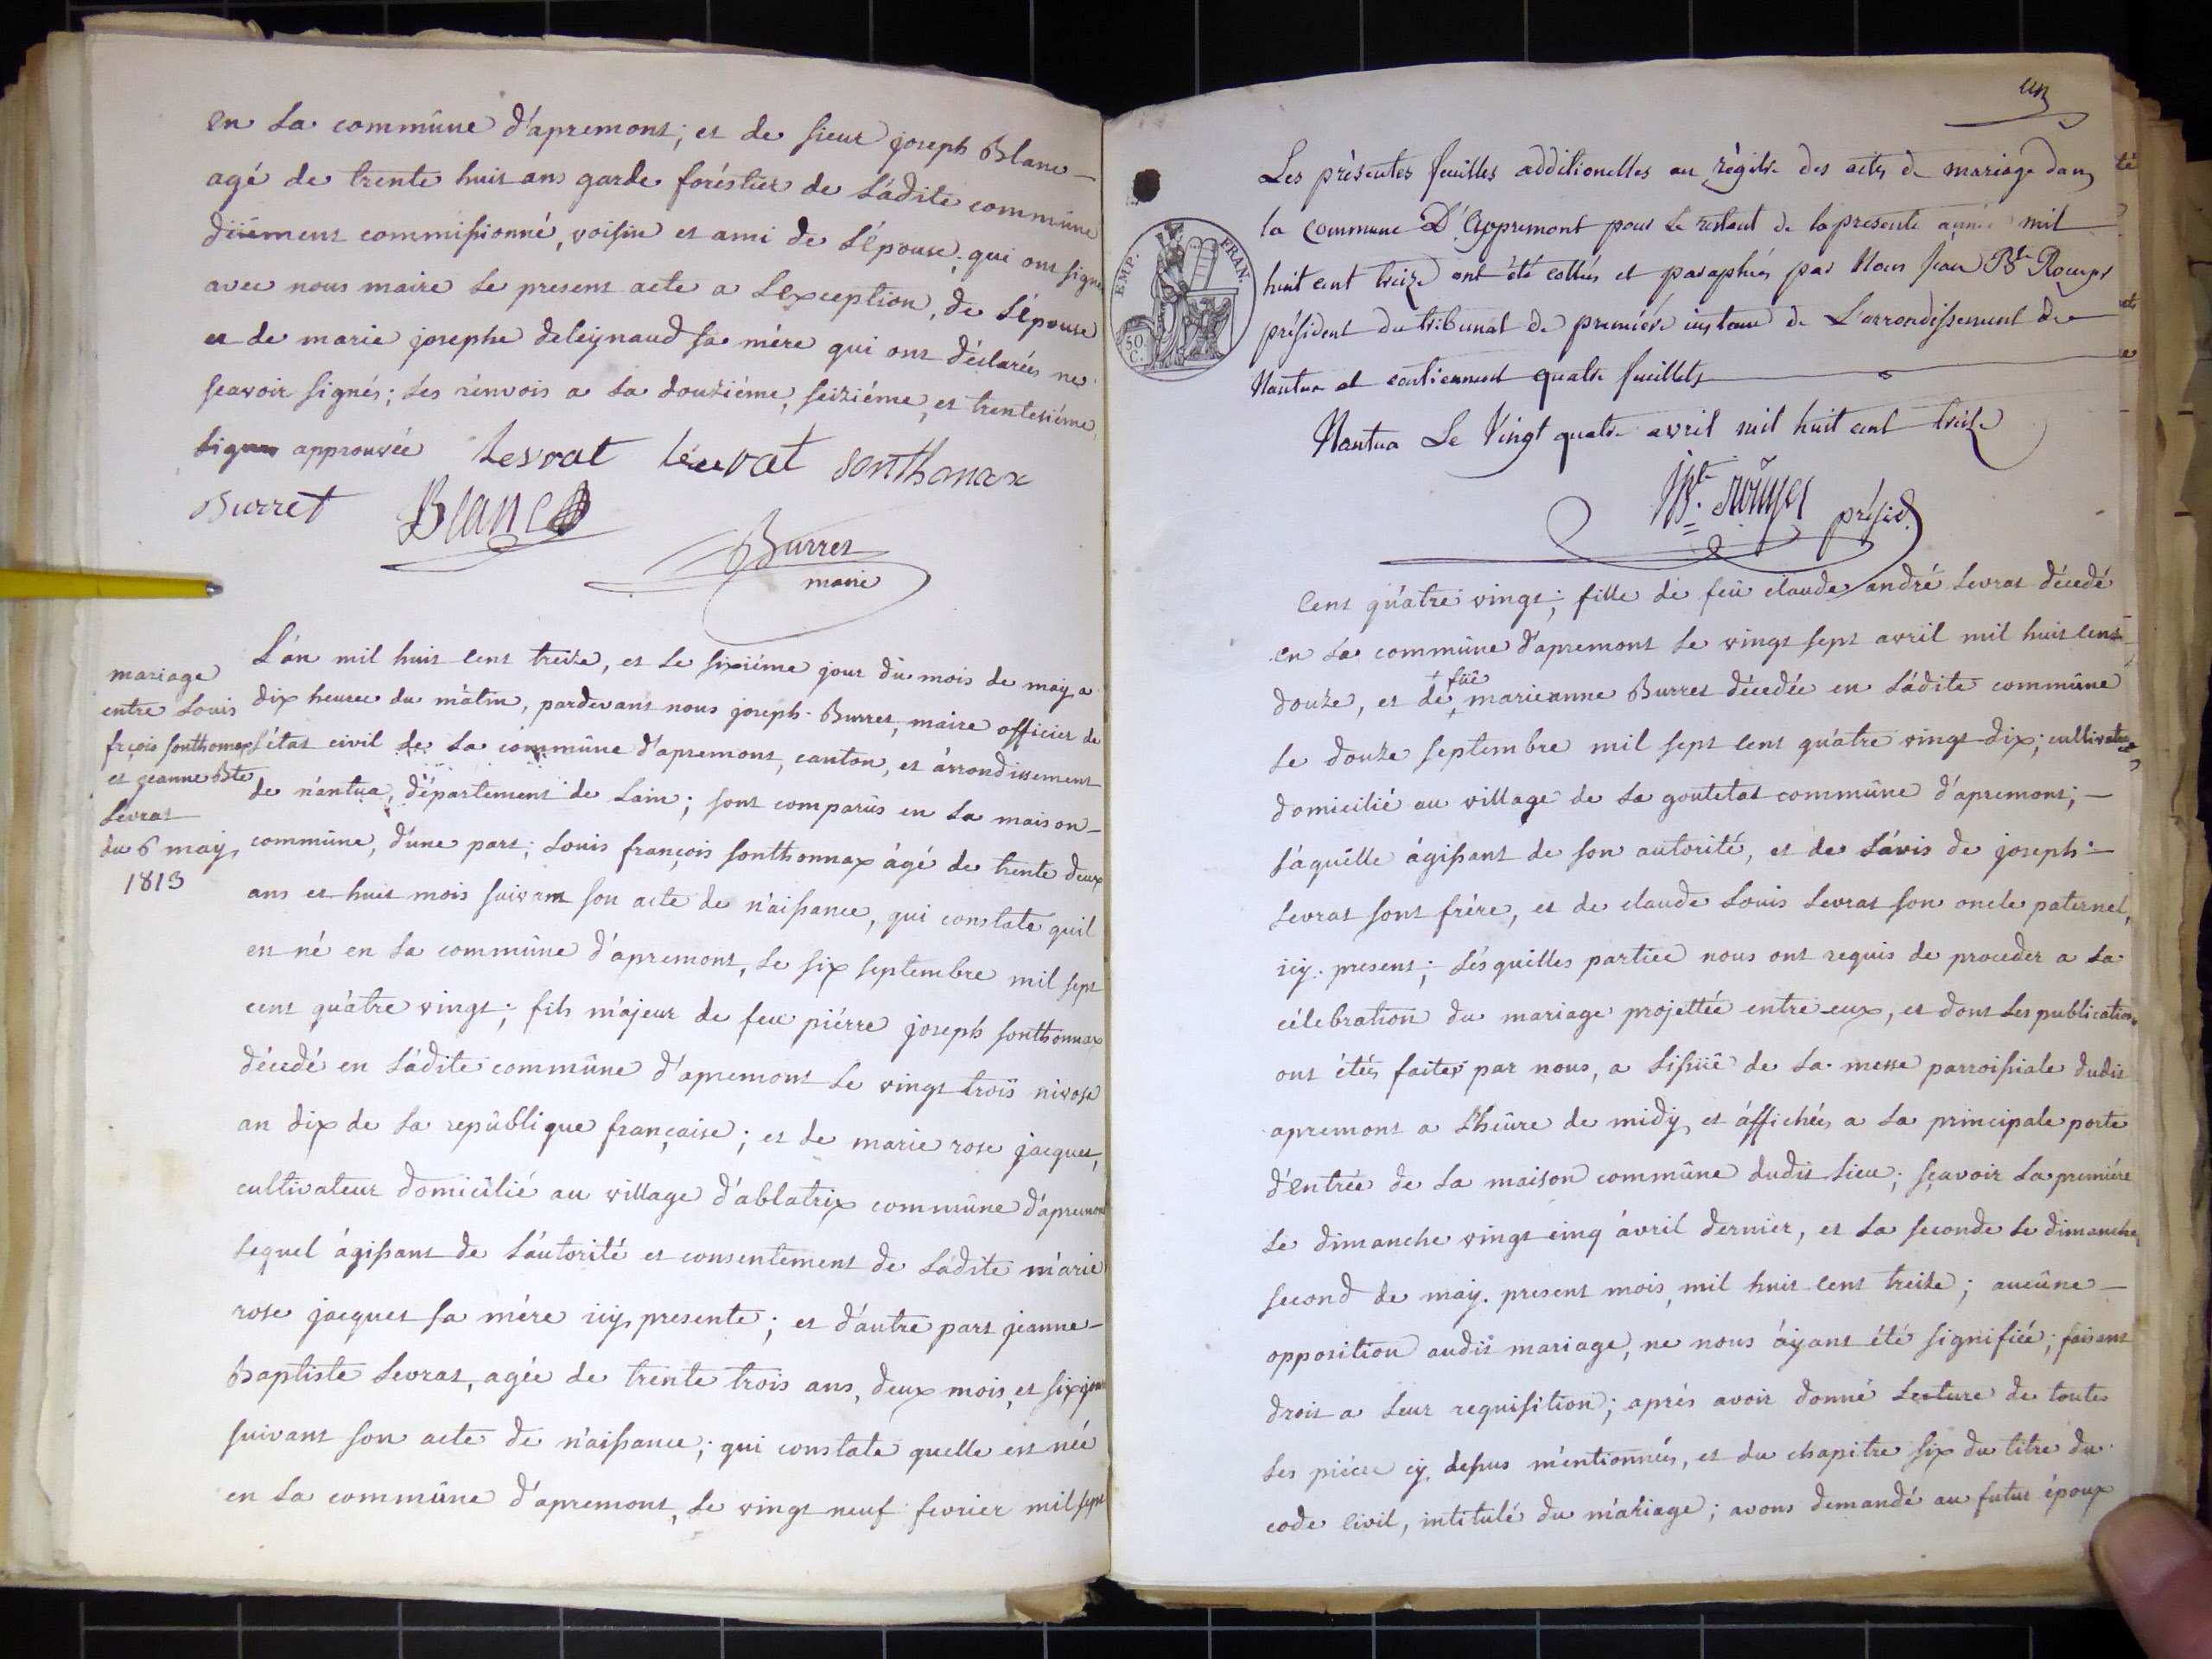 en la commûne d'apremont; et de sieur joseph Blanc —
agé de trente huit ans garde foréstier de ladite commûne
düement commissionné, voisin et ami de l'épouse; qui ont signé
avec nous maire le present acte a l'exception, de l'épouse
et de marie josephe deleynaud sa mére qui ont déclarés ne
sçavoir signés; les renvois a la douziéme, seiziéme, et trentesiéme,
ligne approuvée Levrat levrat Sonthonax
Burret Blanc
Burret
maire
mariage
entre Louis
fçois sonthonax
et jeanne Bte
Levrat
du 6 may
1813
L'an mil huit cent treize, et le sixiéme jour du mois de may a
dix heures du mâtin, pardevant nous joseph Burret, maire officier de
l'état civil de la commûne d'apremont, canton, et arrondissement
de nantua, département de Lain; sont comparûs en la maison —
commûne, d'une part; Louis françois sonthonnax âgé de trente deux
ans et huit mois suivant son acte de naissance, qui constate quil
est né en la commûne d'apremont, le six septembre mil sept
cent quatre vingt; fils majeur de feu piérre joseph sonthonnax
décedé en ladite commûne d'apremont le vingt trois nivose
an dix de la republique française; et de marie rose jacquet,
cultivateur domicilié au village d'ablatrix commûne d'apremont
lequel agissant de l'autorité et consentement de ladite marie
rose jacquet sa mére icy presente; et d'autre part jeanne —
Baptiste Levrat, agée de trente trois ans, deux mois, et six jours
suivant son acte de naissance; qui constate quelle est née
en la commûne d'apremont, le vingt neuf fevrier mil sept
un
Les présentes feuilles additionelles au régitre des actes de mariage dans
la commune D'Appremont pour le restant de la presente année mil
huit cent treize ont été cottées et paraphées par Nous Jean Bte Rouyer
président du tribunal de première instance de L'arrondissement de
Nantua et contiennent quatre feuillets
Nantua Le Vingt quatre avril mil huit cent treize
JBte. Rouyer présid.
EMP. FRAN.
50 C.
cent quatre vingt; fille de feu claude andré Levrat décedé
en la commûne d'apremont le vingt sept avril mil huit cent
+ füe
douze, et de + marie anne Burret décedée en ladite commûne
le douze septembre mil sept cent quatre vingt dix; cultivatrice
domicilié au village de la goutetat commûne d'apremont; —
laquelle agissant de son autorité, et de l'avis de joseph —
Levrat sont frére, et de claude Louis Levrat son oncle paternel,
icy present; lésquelles parties nous ont requis de proceder a la
célebration du mariage projettée entre eux, et dont les publications
ont étés faites par nous, a lissüe de la messe parroissiale dudit
apremont a l'heure de midy et affichées a la principale porte
d'entrée de la maison commûne dudit lieu; sçavoir la premiére
le dimanche vingt cinq avril dernier, et la seconde le dimanche
second de may present mois, mil huit cent treize; aucûne —
opposition audit mariage, ne nous ayant été signifiée; faisant
droit a leur requisition; aprés avoir donné lecture de toutes
les piéces cy dessus mentionnées, et du chapitre six du titre du
code civil, intitulé du mariage; avons demandé au futur époux